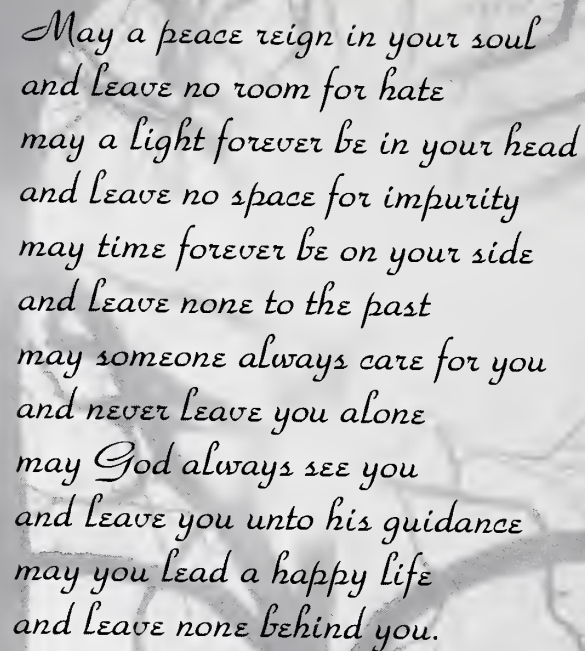 May a peace reign in your soul
and leave no room for hate
may a light forever be in your head
and leave no space for impurity
may time forever be on your side
and leave none to the past
may someone always care for you
and never leave you alone
may God always see you
and leave you unto his guidance
may you lead a happy life
and leave none behind you.